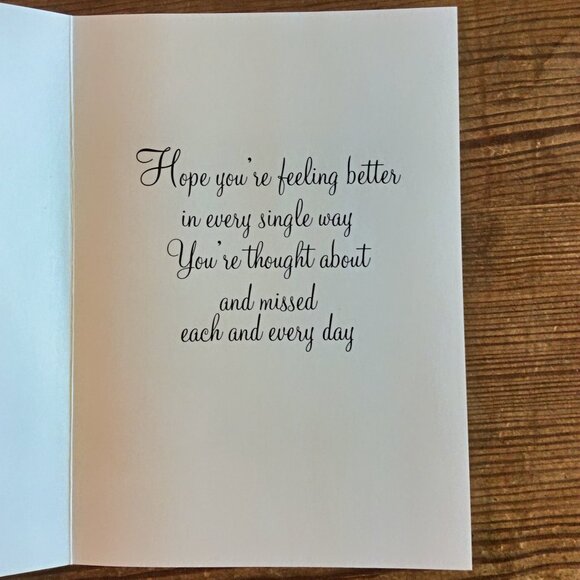 Hope you're feeling better
in every single way
You're thought about
and missed
each and every day